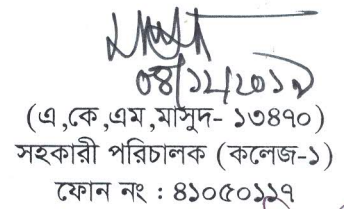 ০৪/১২/২০১৯
(এ,কে,এম,মাসুদ- ১৩৪৭০)
সহকারী পরিচালক (কলেজ-১)
ফোন নং : ৪১০৫০১১৭